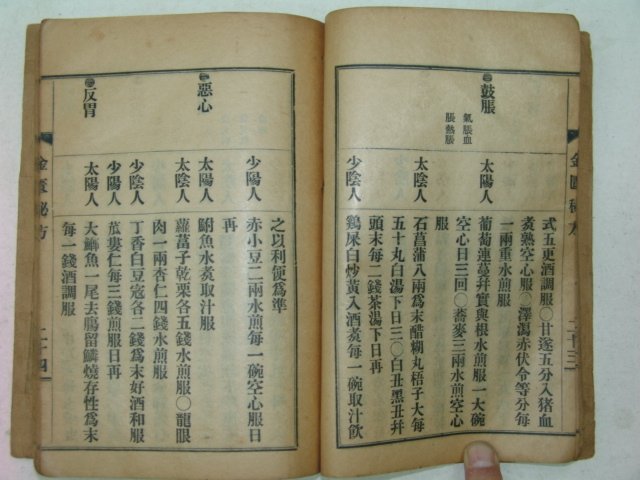 式五更酒調服○甘遂五分入猪血
煮熟空心服○澤瀉赤伏令等分每
一兩重水煎服
鼓脹
氣脹血
脹熱脹
太陽人
葡萄連蔓幷實與根水煎服一大碗
空心日三回○蕎麥三兩水煎空心
服
太陰人
石菖蒲八兩爲末醋糊丸梧子大每
五十丸白湯下日三○白丑黑丑幷
頭末每二錢茶湯下日再
少陰人
鷄屎白炒黃入酒煮每一碗取汁飮
金匱秘方
二十三
之以利便爲準
少陽人
赤小豆二兩水煎每一碗空心服日
再
惡心
太陽人
鮒魚水煮取汁服
太陰人
蘿葍子乾栗各五錢水煎服○龍眼
肉一兩杏仁四錢水煎服
少陰人
丁香白豆寇各二錢爲末好酒和服
少陽人
苽蔞仁每三錢煎服日再
反胃
太陽人
大鯽魚一尾去膓留鱗燒存性爲末
每一錢酒調服
金匱秘方
二十四